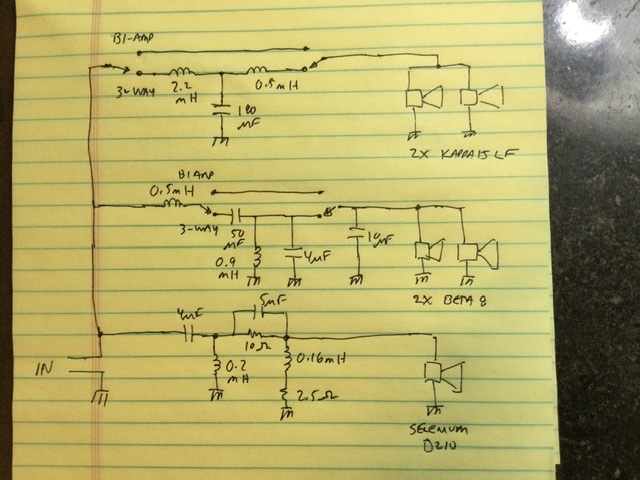 BI-AMP
3-WAY
2.2
mH
0.5mH
180
µF
2X KAPPA15 LF
BI AMP
0.5mH
3-WAY
50
µF
0.9
mH
4µF
10µF
2X BETA 8
4µF
5µF
10Ω
0.2
mH
0.16mH
2.5Ω
IN
SELENIUM
D210